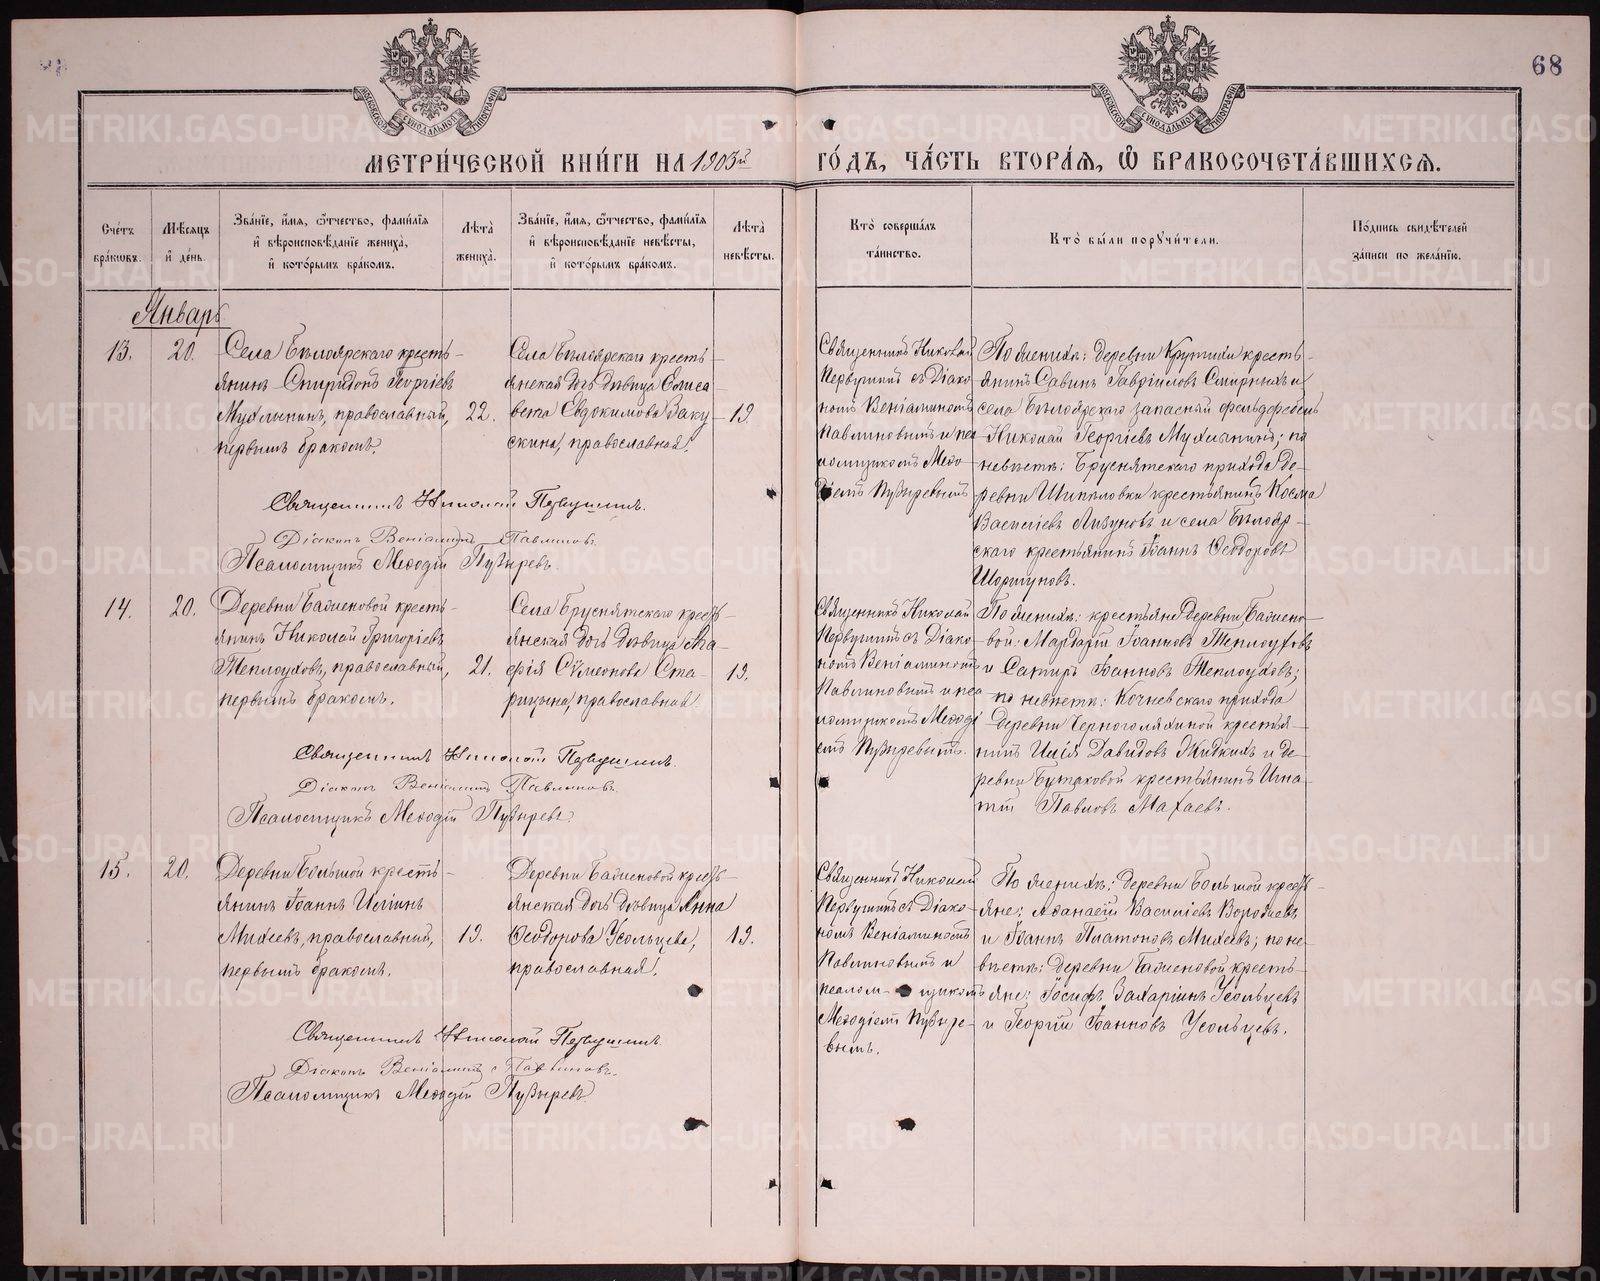 68
МЕТРИ́ЧЕСКОЙ КНИ́ГИ НА 1903й ГО́ДЪ, ЧА́СТЬ ВТОРА́Я, Ѿ БРАКОСОЧЕТА́ВШИХСЯ.
Сче́тъ бра́ковъ.
Мѣ́сяцъ и́ де́нь.
Зва́нїе, и́мя, ѻ́тчество, фами́лїя и́ вѣроисповѣ́данїе жениха̀, и́ кото́рымъ бра́комъ.
Лѣ́та жениха̀.
Зва́нїе, и́мя, ѻ́тчество, фами́лїя и́ вѣроисповѣ́данїе невѣ́сты, и́ кото́рымъ бра́комъ.
Лѣ́та невѣ́сты.
Кто̀ соверша́лъ та́инство.
Кто̀ бы́ли поручи́тели.
По́дпись свидѣ́телей за́писи по жела́нїю.
Январь
13.
20.
Села Бѣлоярскаго кресть-
янинъ Спиридонъ Георгіевъ
Мухлынинъ, православный,
первымъ бракомъ.
22.
Села Бѣлоярскаго кресть-
янская дочь дѣвица Елиса-
вета Евдокимова Заку-
скина, православная.
19.
Священникъ Николай
Первушинъ съ Діако-
номъ Веніаминомъ
Павлиновымъ и пса-
ломщикомъ Меѳо-
діемъ Пузыревымъ
По женихѣ: деревни Крутихи кресть-
янинъ Савинъ Гавріиловъ Смирныхъ и
села Бѣлоярскаго запасный фельдфебель
Николай Георгіевъ Мухлынинъ; по
невѣстѣ: Бруснятскаго прихода де-
ревни Шипѣловки крестьянинъ Косма
Василіевъ Лизуновъ и села Бѣлояр-
скаго крестьянинъ Іоаннъ Ѳеодоровъ
Шоршуновъ.
Священникъ Николай Первушинъ.
Діаконъ Веніаминъ Павлиновъ.
Псаломщикъ Меѳодій Пузыревъ.
14.
20.
Деревни Баженовой кресть-
янинъ Николай Григоріевъ
Теплоуховъ, православный,
первымъ бракомъ.
21.
Села Бруснятскаго кресть-
янская дочь дѣвица Ма-
рія Сѵмеонова Ста-
рицына, православная
19.
Священникъ Николай
Первушинъ съ Діако-
номъ Веніаминомъ
Павлиновымъ и пса-
ломщикомъ Меѳоді-
емъ Пузыревымъ.
По женихѣ: крестьяне деревни Бажено-
вой: Мардарій Іоанновъ Теплоуховъ
и Сатиръ Іоанновъ Теплоуховъ;
по невѣстѣ: Кочневскаго прихода
деревни Черноголяхиной крестья-
нинъ Илія Давидовъ Жидкихъ и де-
ревни Бутаковой крестьянинъ Игна-
тій Павловъ Махаевъ.
Священникъ Николай Первушинъ.
Діаконъ Веніаминъ Павлиновъ.
Псаломщикъ Меѳодій Пузыревъ.
15.
20.
Деревни Большой кресть-
янинъ Іоаннъ Иліинъ
Михеевъ, православный,
первымъ бракомъ.
19.
Деревни Баженовой кресть-
янская дочь дѣвица Анна
Ѳеодорова Усольцева,
православная.
19.
Священникъ Николай
Первушинъ съ Діако-
номъ Веніаминомъ
Павлиновымъ и
псалом-щикомъ
Меѳодіемъ Пузыре-
вымъ.
По женихѣ: деревни Большой кресть-
яне: Аѳанасій Василіевъ Воробьевъ
и Іоаннъ Платоновъ Михеевъ; по не-
вѣстѣ: деревни Баженовой кресть-
яне: Іосифъ Захаріинъ Усольцевъ
и Георгій Іоанновъ Усольцевъ.
Священникъ Николай Первушинъ.
Діаконъ Веніаминъ Павлиновъ.
Псаломщикъ Меѳодій Пузыревъ